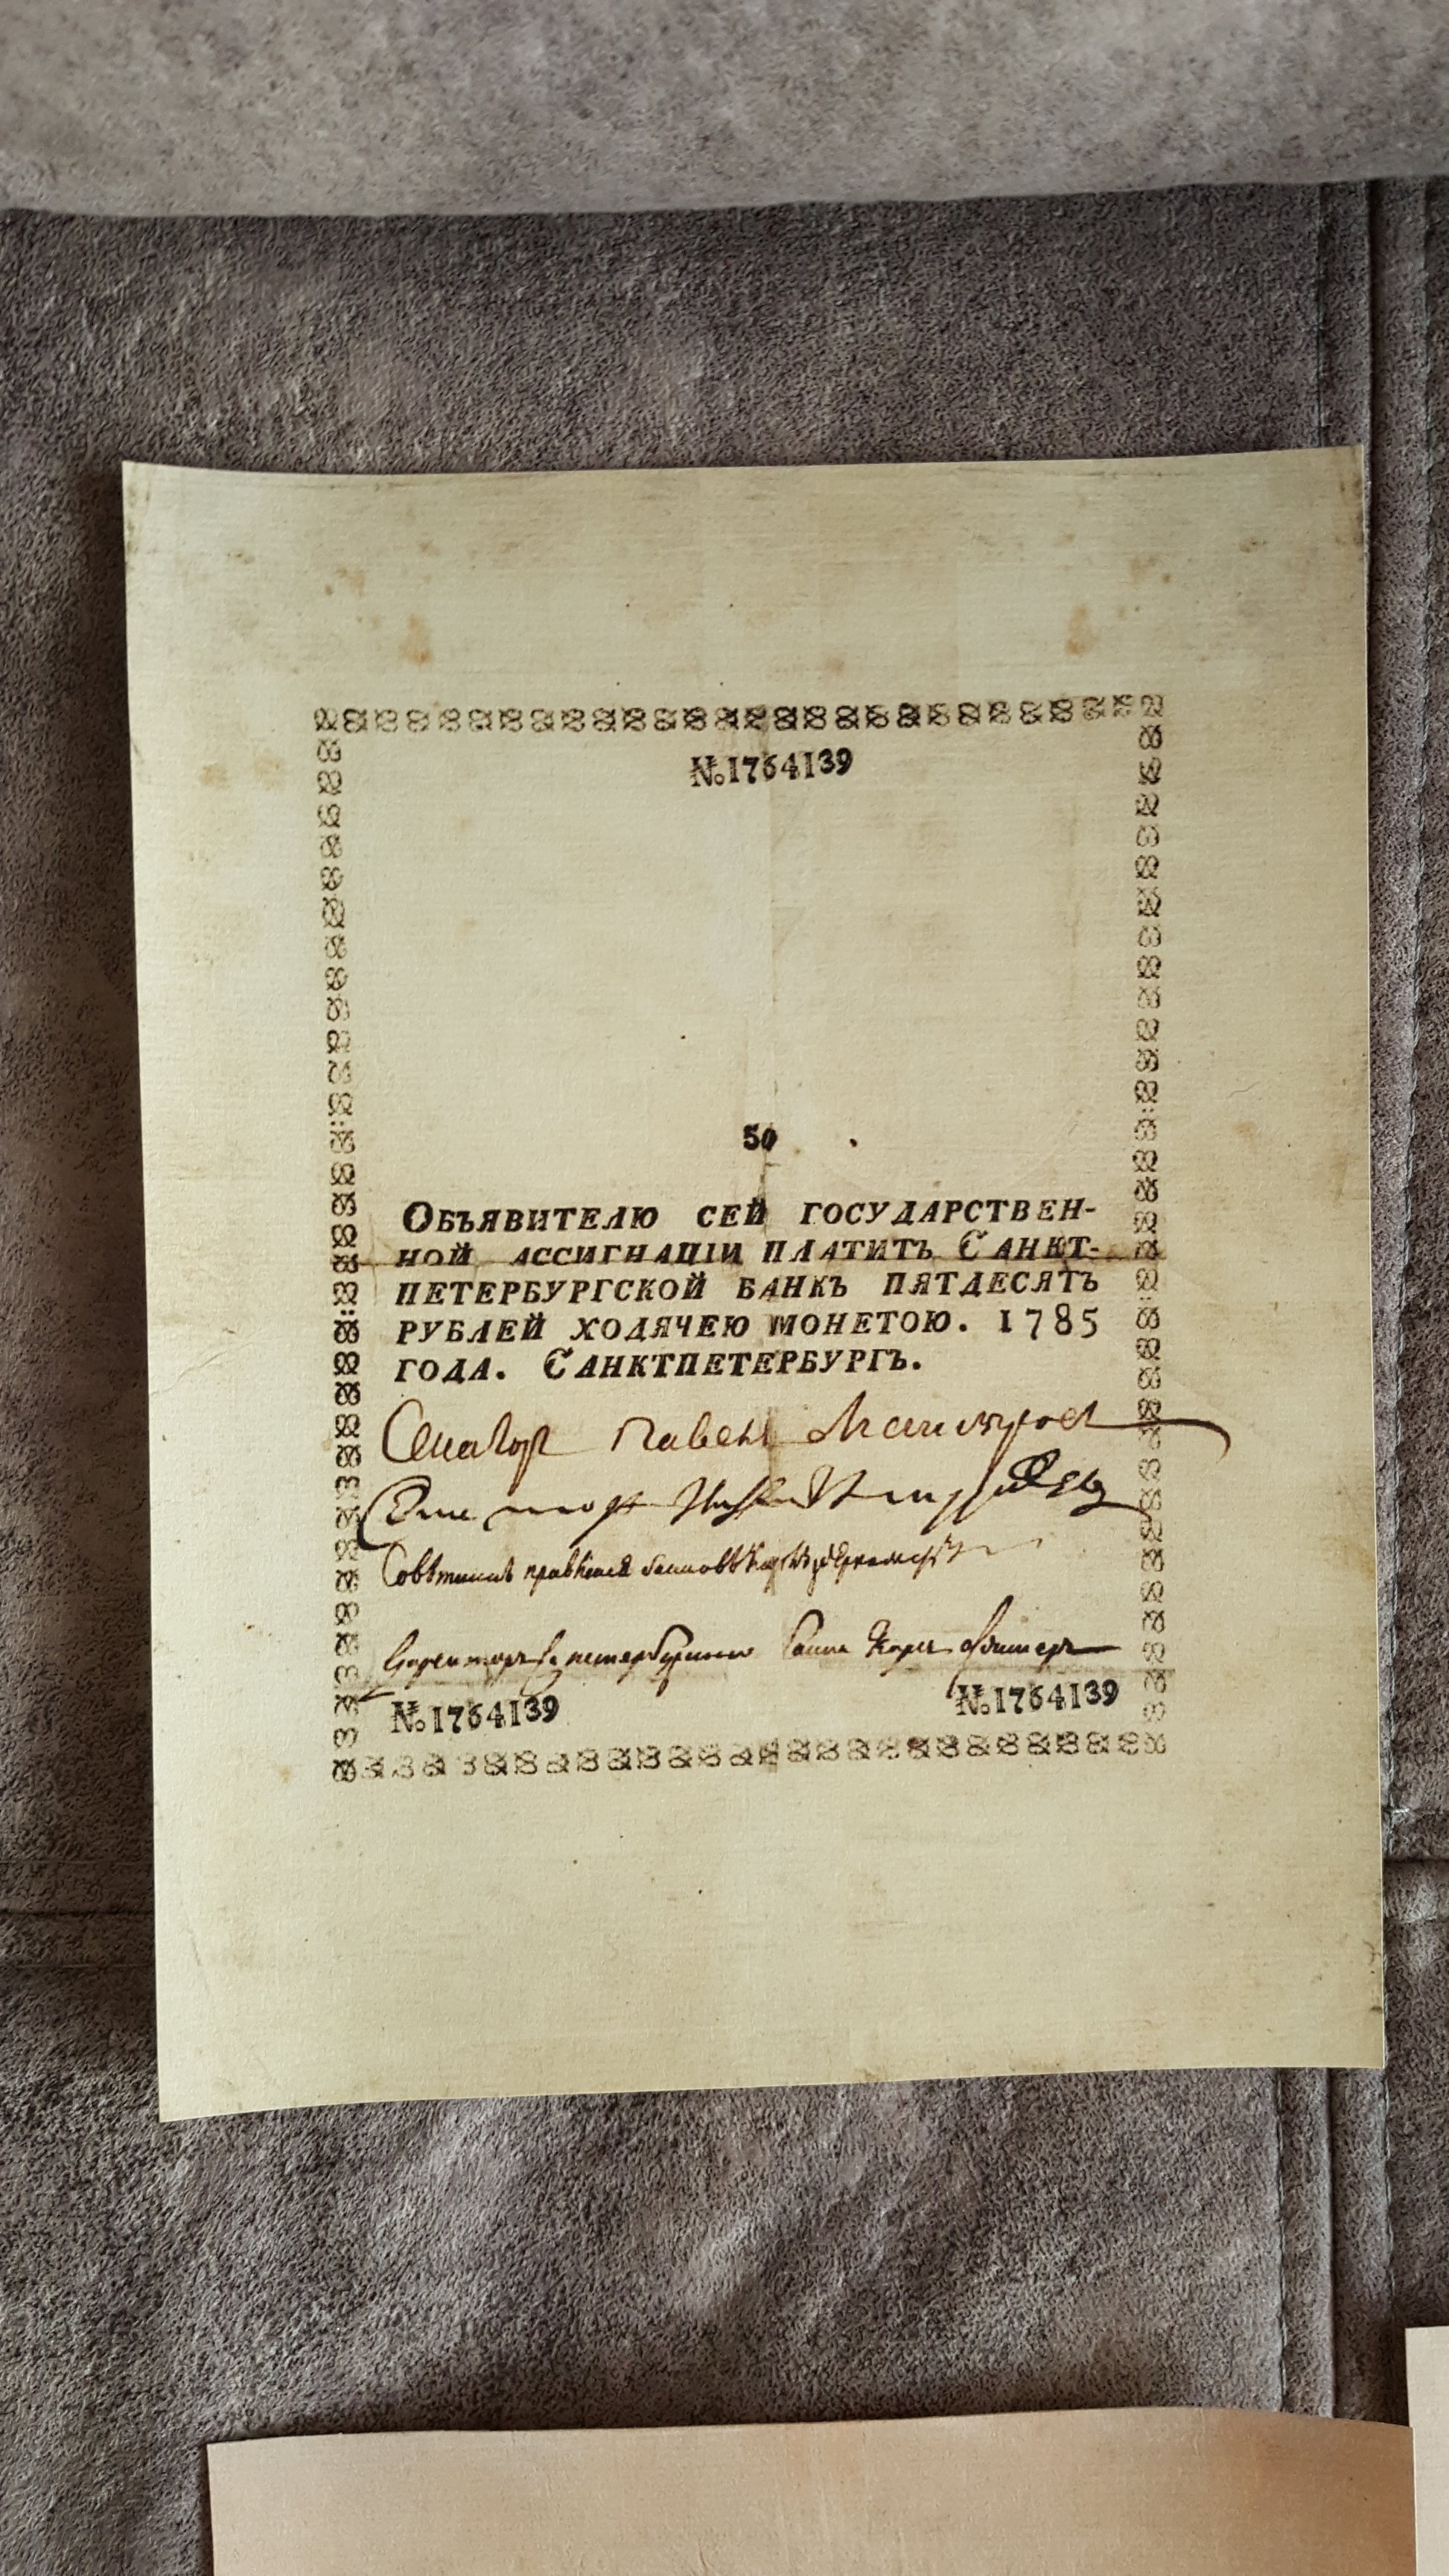 №1764139
50
Объявителю сей государствен-
ной ассигнацıи платить Санкт-
петербургской банкъ пятдесятъ
рублей ходячею монетою. 1785
года. Санктпетербургъ.
Сенатор Павелъ
Совѣтникъ правленія
Директоръ С. петербургского банка Карлъ Фишеръ
№1764139 №1764139